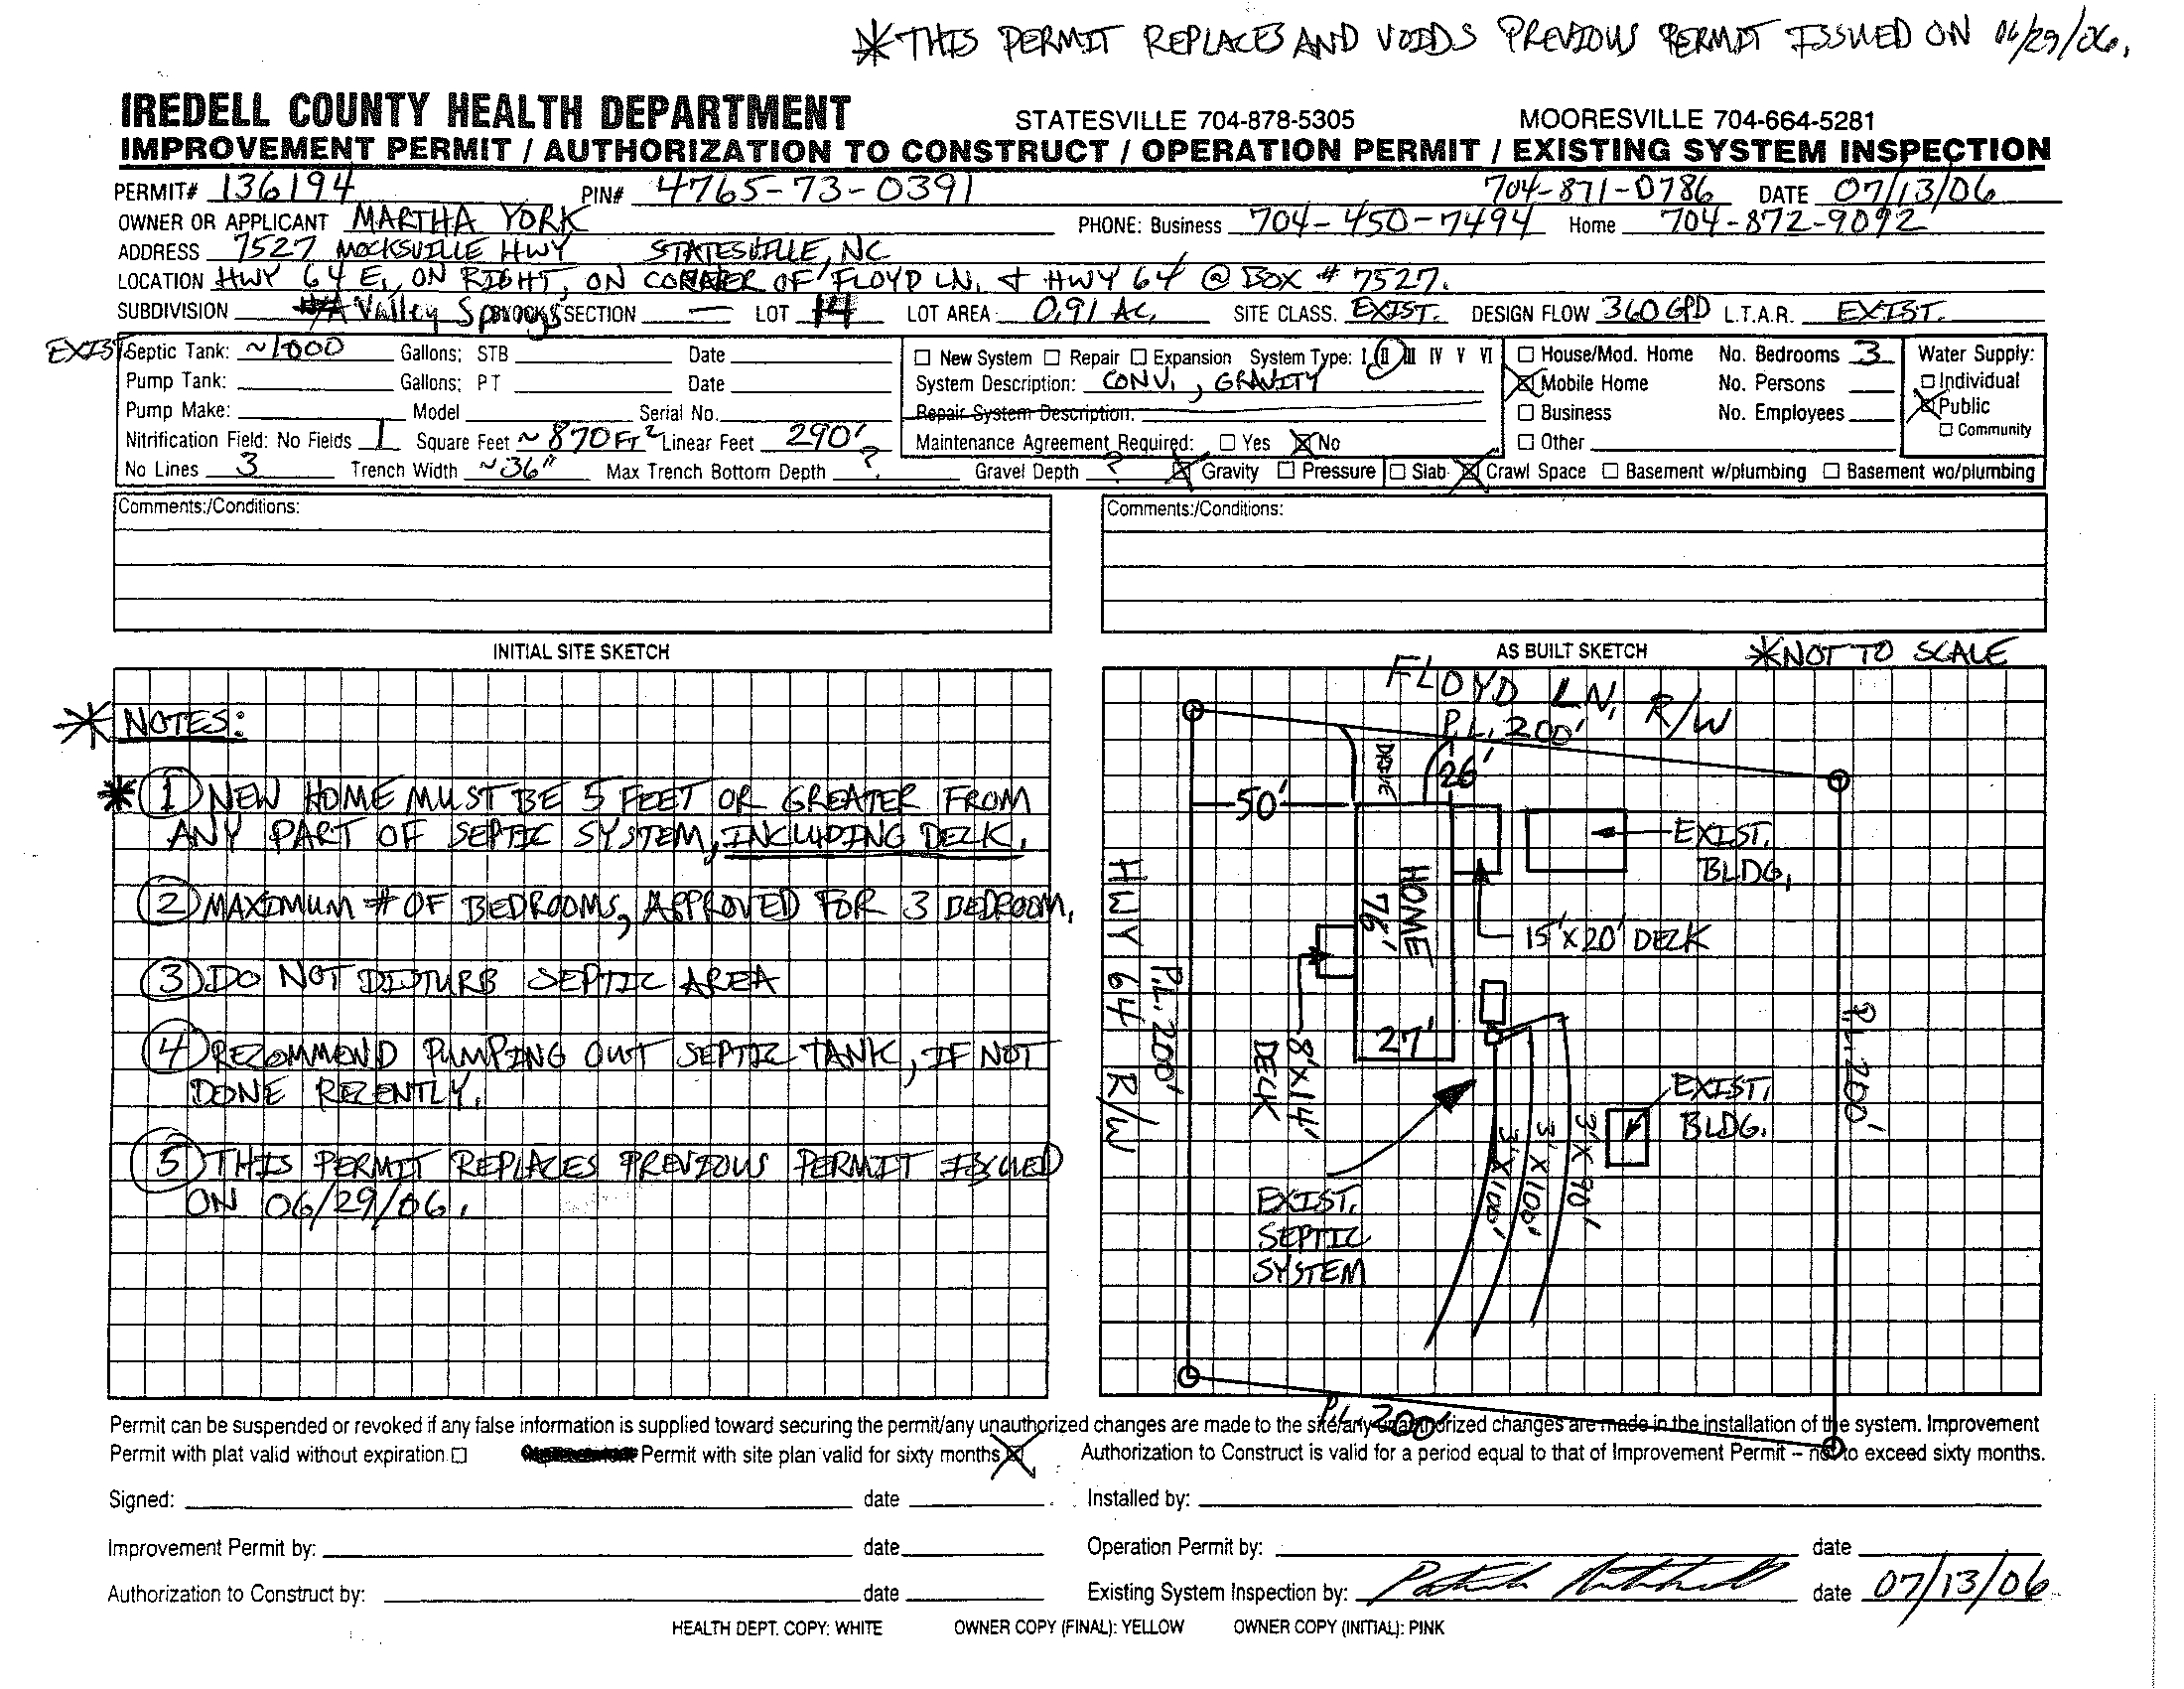 *THIS PERMIT REPLACES AND VOIDS PREVIOUS PERMIT ISSUED ON 06/29/06.
IREDELL COUNTY HEALTH DEPARTMENT STATESVILLE 704-878-5305 MOORESVILLE 704-664-5281
IMPROVEMENT PERMIT / AUTHORIZATION TO CONSTRUCT / OPERATION PERMIT / EXISTING SYSTEM INSPECTION
PERMIT# 136194 PIN# 4765-73-0391 704-871-0786 DATE 07/13/06
OWNER OR APPLICANT MARTHA YORK PHONE: Business 704-450-7494 Home 704-872-9092
ADDRESS 7527 MOCKSVILLE HWY STATESVILLE, NC
LOCATION HWY 64 E, ON RIGHT, ON CORNER OF FLOYD LN. & HWY 64 @ BOX # 7527.
SUBDIVISION Valley Springs SECTION — LOT 14 LOT AREA 0.91 AC. SITE CLASS. EXIST. DESIGN FLOW 360 GPD L.T.A.R. EXIST.
EXIST. Septic Tank: ~1000 Gallons; STB Date
Pump Tank: Gallons; PT Date
Pump Make: Model Serial No.
Nitrification Field: No Fields 1 Square Feet ~870 FT² Linear Feet 290'
No Lines 3 Trench Width ~36" Max Trench Bottom Depth ? Gravel Depth ? Gravity Pressure Slab Crawl Space Basement w/plumbing Basement wo/plumbing
New System Repair Expansion System Type: I II III IV V VI
System Description: CONV., GRAVITY
Repair System Description:
Maintenance Agreement Required: Yes No
House/Mod. Home No. Bedrooms 3
Mobile Home No. Persons
Business No. Employees
Other
Water Supply:
Individual
Public
Community
Comments:/Conditions:
Comments:/Conditions:
INITIAL SITE SKETCH
* NOTES:
* 1 NEW HOME MUST BE 5 FEET OR GREATER FROM
ANY PART OF SEPTIC SYSTEM, INCLUDING DECK.
2 MAXIMUM # OF BEDROOMS, APPROVED FOR 3 BEDROOM.
3 DO NOT DISTURB SEPTIC AREA
4 RECOMMEND PUMPING OUT SEPTIC TANK, IF NOT
DONE RECENTLY.
5 THIS PERMIT REPLACES PREVIOUS PERMIT ISSUED
ON 06/29/06.
AS BUILT SKETCH *NOT TO SCALE
FLOYD LN. R/W
P.L. 200'
DRIVE
26'
50'
EXIST.
BLDG.
HOME
76'
15'X20' DECK
HWY 64 R/W
P.L. 200'
27'
8'X14'
DECK
P.L. 200'
EXIST.
BLDG.
3'X100'
3'X100'
3'X90'
EXIST.
SEPTIC
SYSTEM
P.L. 200'
Permit can be suspended or revoked if any false information is supplied toward securing the permit/any unauthorized changes are made to the site/any unauthorized changes are made in the installation of the system. Improvement
Permit with plat valid without expiration Permit with site plan valid for sixty months Authorization to Construct is valid for a period equal to that of Improvement Permit – not to exceed sixty months.
Signed: date Installed by:
Improvement Permit by: date Operation Permit by: date
Authorization to Construct by: date Existing System Inspection by: date 07/13/06
HEALTH DEPT. COPY: WHITE OWNER COPY (FINAL): YELLOW OWNER COPY (INITIAL): PINK